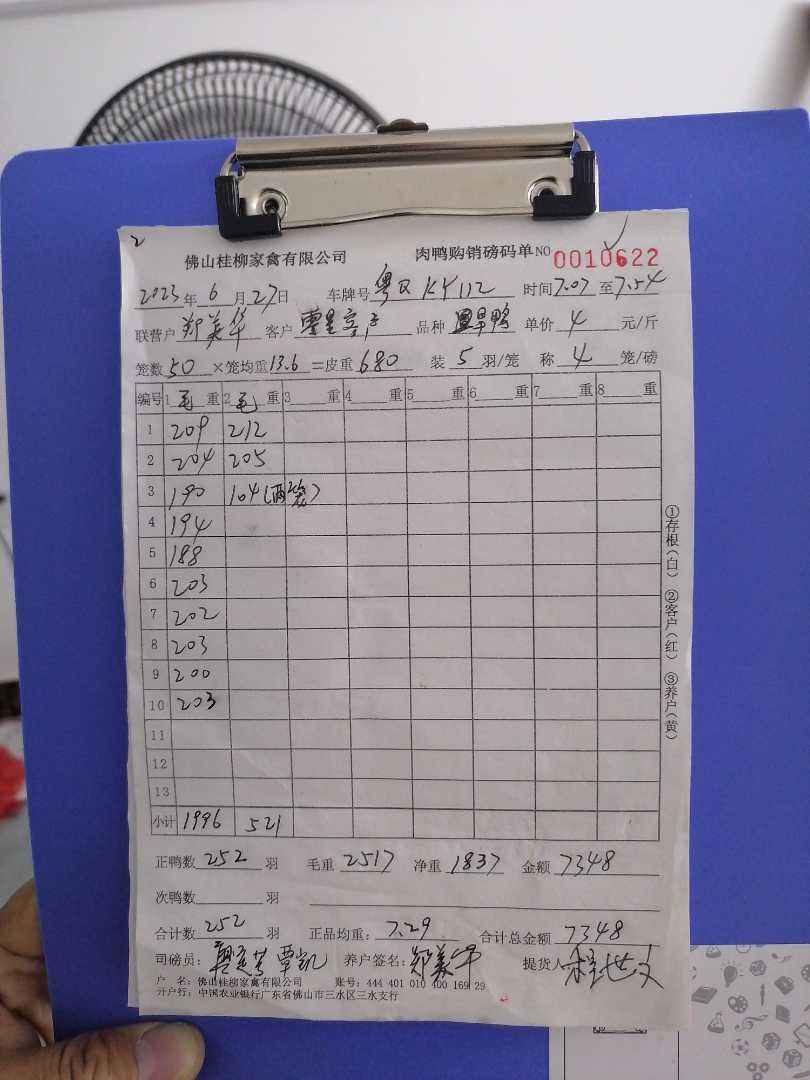 2
佛山桂柳家禽有限公司 肉鸭购销磅码单 NO 0010622
2023年6月27日 车牌号 粤R KY112 时间7.07至7.54
联营户 郑美华 客户 零星客户 品种 旱鸭 单价 4 元/斤
笼数 50 ×笼均重 13.6 =皮重 680 装 5 羽/笼 称 4 笼/磅
编号 1毛重 2毛重 3重 4重 5重 6重 7重 8重
1 209 212
2 204 205
3 190 104(两笼)
4 194
5 188
6 203
7 202
8 203
9 200
10 203
11
12
13
小计 1996 521
正鸭数 252 羽 毛重 2517 净重 1837 金额 7348
次鸭数 羽
合计数 252 羽 正品均重: 7.29 合计总金额 7348
司磅员: 覃凯 养户签名: 郑美华 提货人
户 名: 佛山桂柳家禽有限公司 账号: 444 401 010 400 169 29
开户行: 中国农业银行广东省佛山市三水区三水支行
①存根(白) ②客户(红) ③养户(黄)